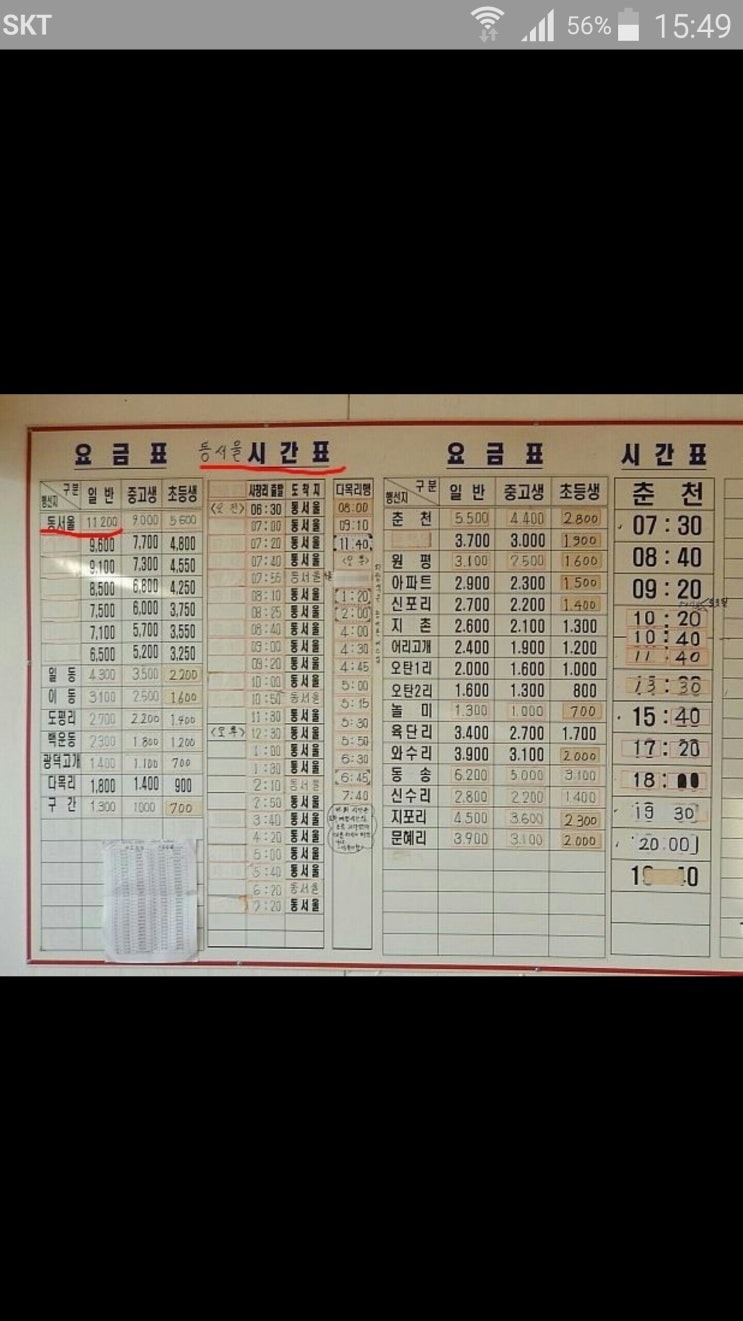 SKT 56% 15:49
요금표 동서울 시간표 요금표 시간표
구분 행선지 일반 중고생 초등생
동서울 11.200 9.000 5.600
9,600 7,700 4,800
9.100 7,300 4,550
8,500 6,800 4,250
7,500 6,000 3,750
7,100 5,700 3,550
6,500 5,200 3,250
일동 4300 3.500 2.200
이동 3100 2.500 1.600
도평리 2700 2.200 1.400
백운동 2300 1.800 1.200
광덕고개 1.400 1.100 700
다목리 1,800 1.400 900
구간 1.300 1000 700
사창리 출발 도착지
<오전> 06:30 동서울
07:00 동서울
07:20 동서울
07:40 동서울
07:55 동서울
08:10 동서울
08:25 동서울
08:40 동서울
09:00 동서울
09:20 동서울
10:00 동서울
10:50 동서울
11:30 동서울
<오후> 12:30 동서울
1:00 동서울
1:30 동서울
2:10 동서울
2:50 동서울
3:40 동서울
4:20 동서울
5:00 동서울
5:40 동서울
6:20 동서울
7:20 동서울
다목리행
08:00
09:10
11.40
<오후>
1:20
2:00
4:00
4:30
4:45
5:00
5:15
5:30
5:50
6:30
6:45
7:40
구분 행선지 일반 중고생 초등생
춘천 5.500 4.400 2.800
3.700 3.000 1.900
원평 3.100 2500 1.600
아파트 2.900 2.300 1.500
신포리 2.700 2.200 1.400
지촌 2.600 2.100 1.300
어리고개 2.400 1.900 1.200
오탄1리 2.000 1.600 1.000
오탄2리 1.600 1.300 800
놀미 1.300 1.000 700
육단리 3.400 2.700 1.700
와수리 3.900 3.100 2.000
동송 6.200 5.000 3.100
신수리 2.800 2.200 1.400
지포리 4.500 3.600 2.300
문혜리 3.900 3.100 2.000
춘천
07:30
08:40
09:20
10:20
10:40
11:40
13:30
15:40
17:20
18:
19 30
20.00